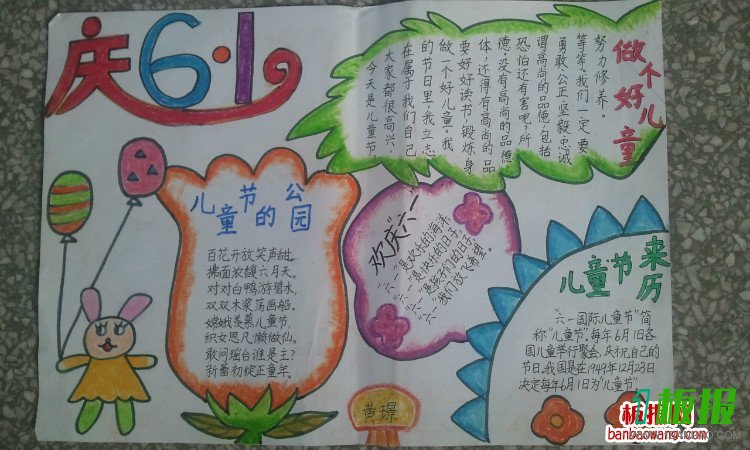 庆6·1
做个好儿童
今天是儿童节,
大家都很高兴,
在属于我们自己
的节日里,我立志
做一个好儿童。我
要好好读书,锻炼身
体,还得有高尚的品
德。没有高尚的品德
恐怕还有害呢?所
谓高尚的品德,包括
勇敢、公正、坚毅、忠诚
等等,我们一定要
努力修养。
儿童节的公园
百花开放笑声甜,
拂面浓馥六月天。
对对白鸭游碧水,
双双木桨荡画船。
嫦娥羡慕儿童节,
织女思凡懒做仙。
敢问瑶台谁是主?
新蕾初绽正童年。
欢庆“六一”
“六一”是欢乐的海洋,
“六一”是快乐的日子,
“六一”是孩子们的日子,
“六一”我们放飞希望。
儿童节来历
“六一国际儿童节”简
称“儿童节”。每年6月1日各
国儿童举行聚会,庆祝自己的
节日。我国是在1949年12月23日
决定每年6月1日为“儿童节”。
黄璟
板报网
banbaowang.com
板报